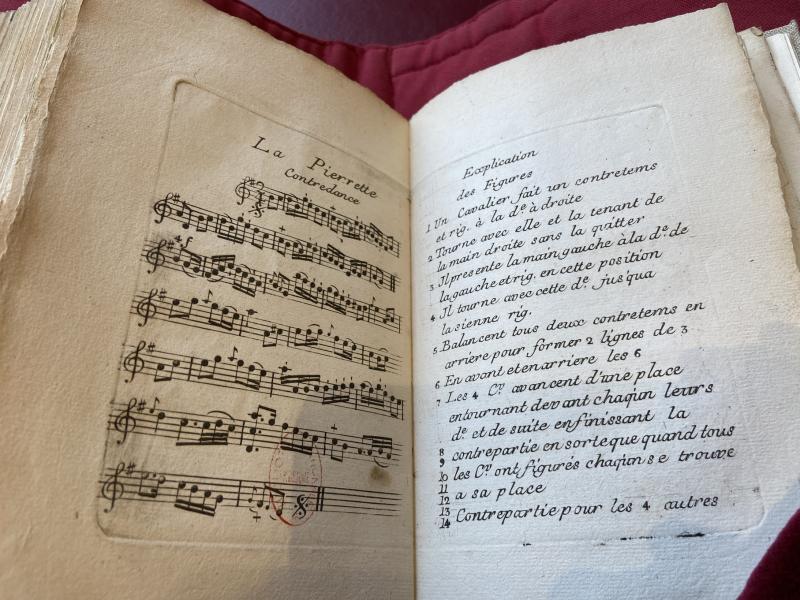 La Pierrette
Contredance
Explication
des Figures
1 Un Cavalier fait un contretems
et rig. à la dᵉ à droite
2 Tourne avec elle et la tenant de
la main droite sans la quitter
3 Il presente la main gauche à la dᵉ. de
la gauche et rig. en cette position
4 Il tourne avec cette dᵉ. jusqua
la sienne rig.
5 Balancent tous deux contretems en
arriere pour former 2 lignes de 3
6 En avant et en arriere les 6
7 Les 4 Cʳˢ avancent d'une place
en tournant devant chaqun leurs
dᵉ et de suite en finissant la
8 contrepartie en sorte que quand tous
9
10 les Cʳˢ ont figurés chaqun se trouve
11
12 a sa place
13 Contrepartie pour les 4 autres
14